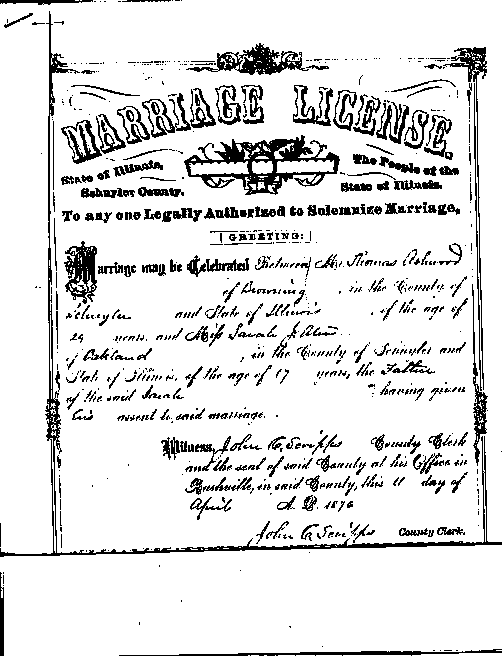 MARRIAGE LICENSE.
State of Illinois,
Schuyler County.
The People of the
State of Illinois.
To any one Legally Authorized to Solemnize Marriage,
GREETING:
Marriage may be Celebrated Between Mr. Thomas Ashwood
of Browning, in the County of
Schuyler and State of Illinois, of the age of
years, and Miss Sarah J.
of Oakland, in the County of Schuyler and
State of Illinois, of the age of 17 years, the Father
of the said Sarah having given
his assent to said marriage.
Witness, John C. Scripps County Clerk
and the seal of said County at his Office in
Rushville, in said County, this 11 day of
April A. D. 1876
John C. Scripps County Clerk.